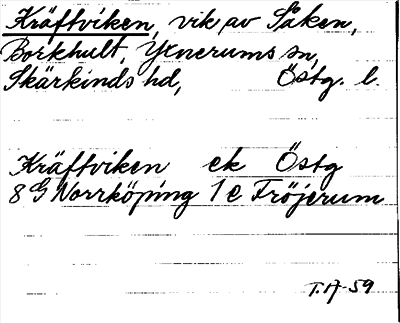 Kräftviken, vik av Såken,
Borkhult, Yxnerums sn,
Skärkinds hd, Östg. l.
Kräftviken ek Östg
8 G Norrköping 1 e Fröjerum
T. A-59